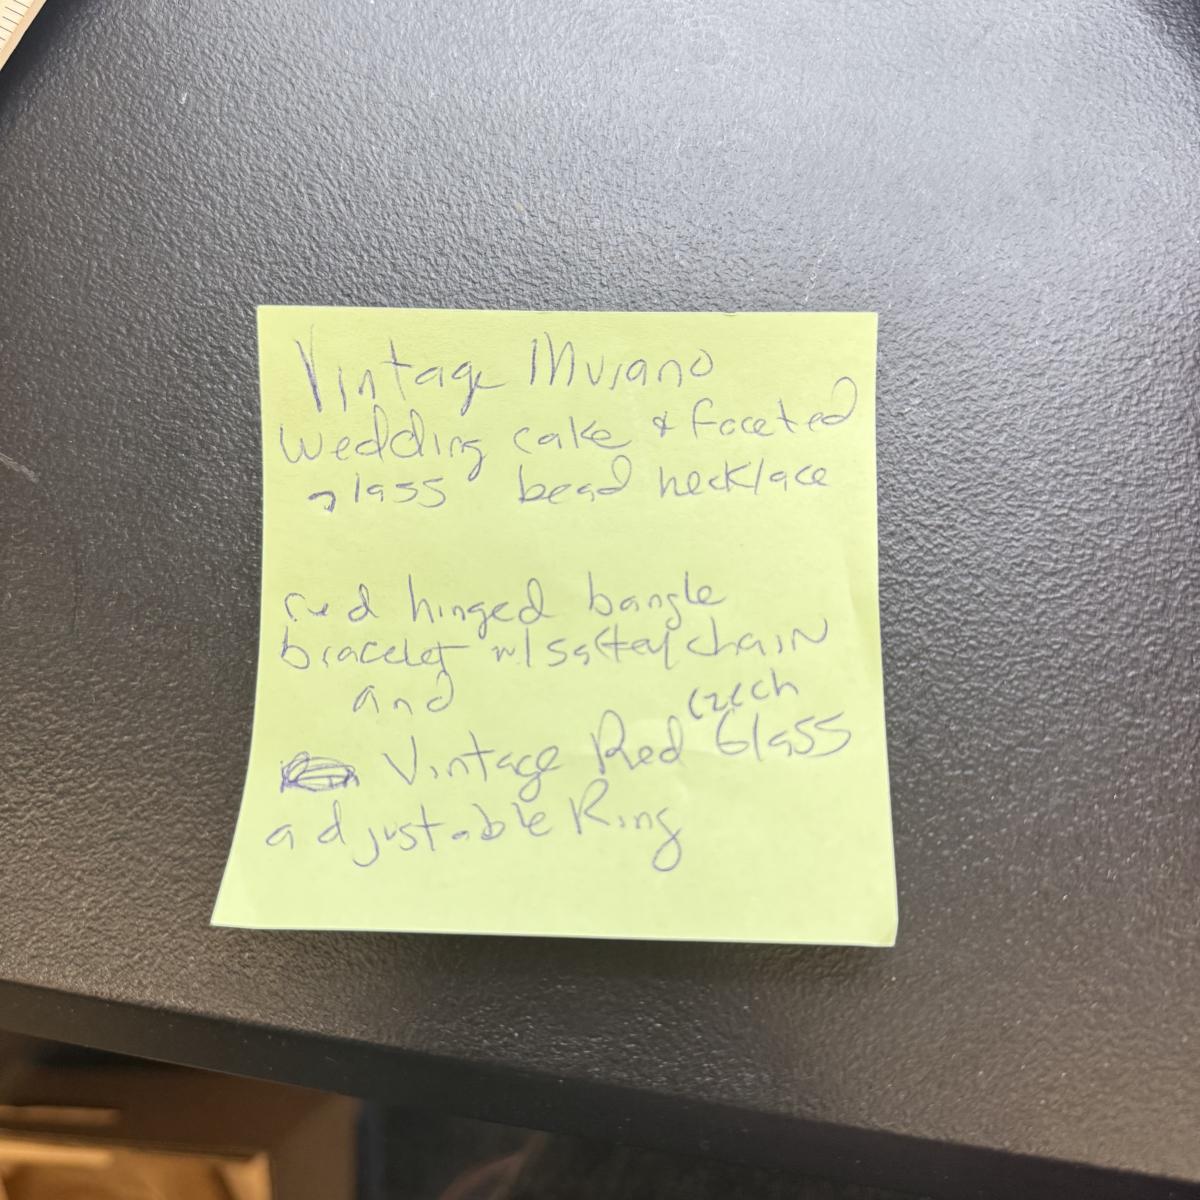 Vintage Murano
wedding cake & faceted
glass bead necklace
red hinged bangle
bracelet w/ saftey chain
and
czech
Vintage Red Glass
adjustable Ring